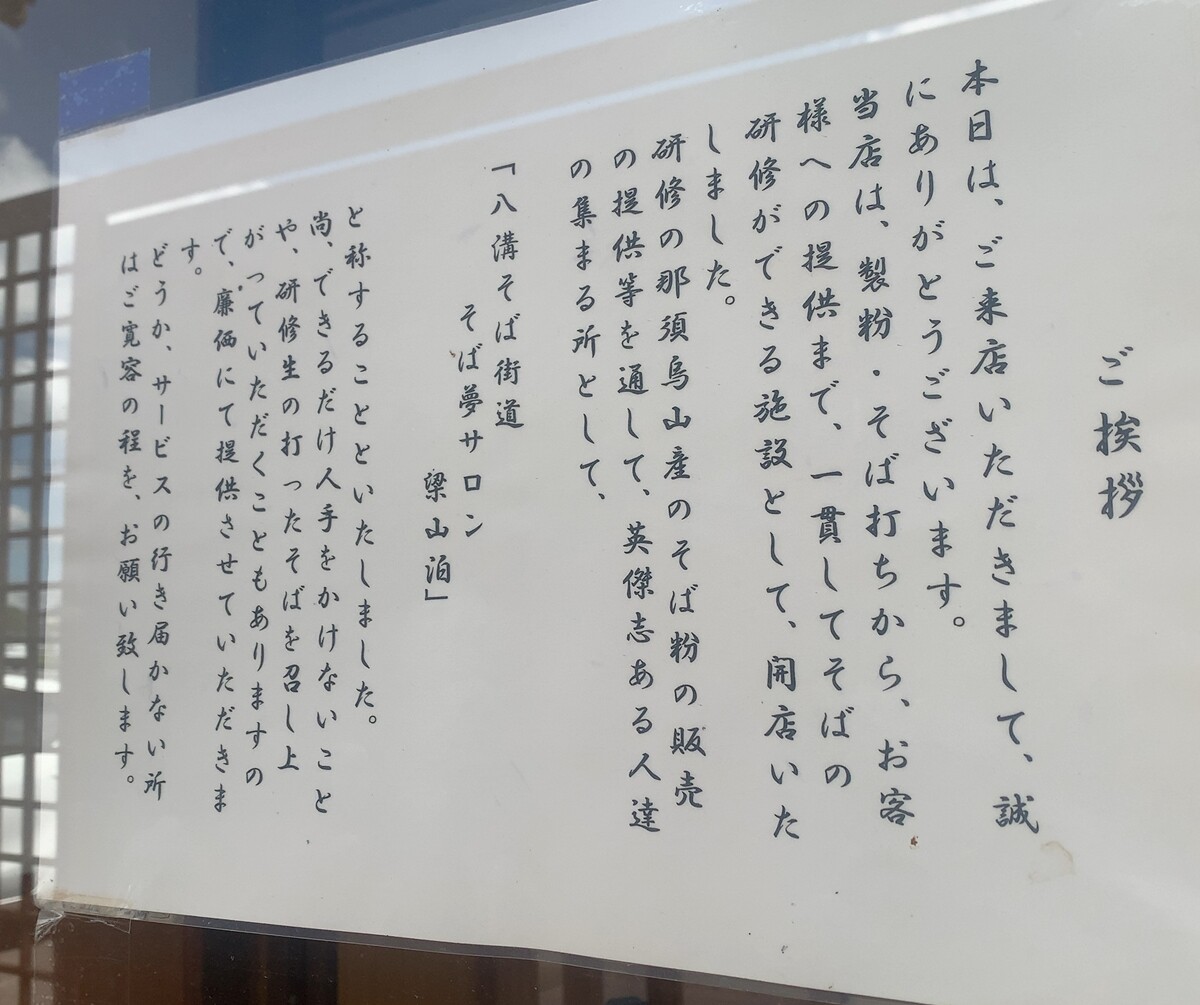 ご挨拶
本日は、ご来店いただきまして、誠
にありがとうございます。
当店は、製粉・そば打ちから、お客
様への提供まで、一貫してそばの
研修ができる施設として、開店いた
しました。
研修の那須烏山産のそば粉の販売
の提供等を通して、英傑志ある人達
の集まる所として、
「八溝そば街道
そば夢サロン
梁山泊」
と称することといたしました。
尚、できるだけ人手をかけないこと
や、研修生の打ったそばを召し上
がっていただくこともありますの
で、廉価にて提供させていただきま
す。
どうか、サービスの行き届かない所
はご寛容の程を、お願い致します。